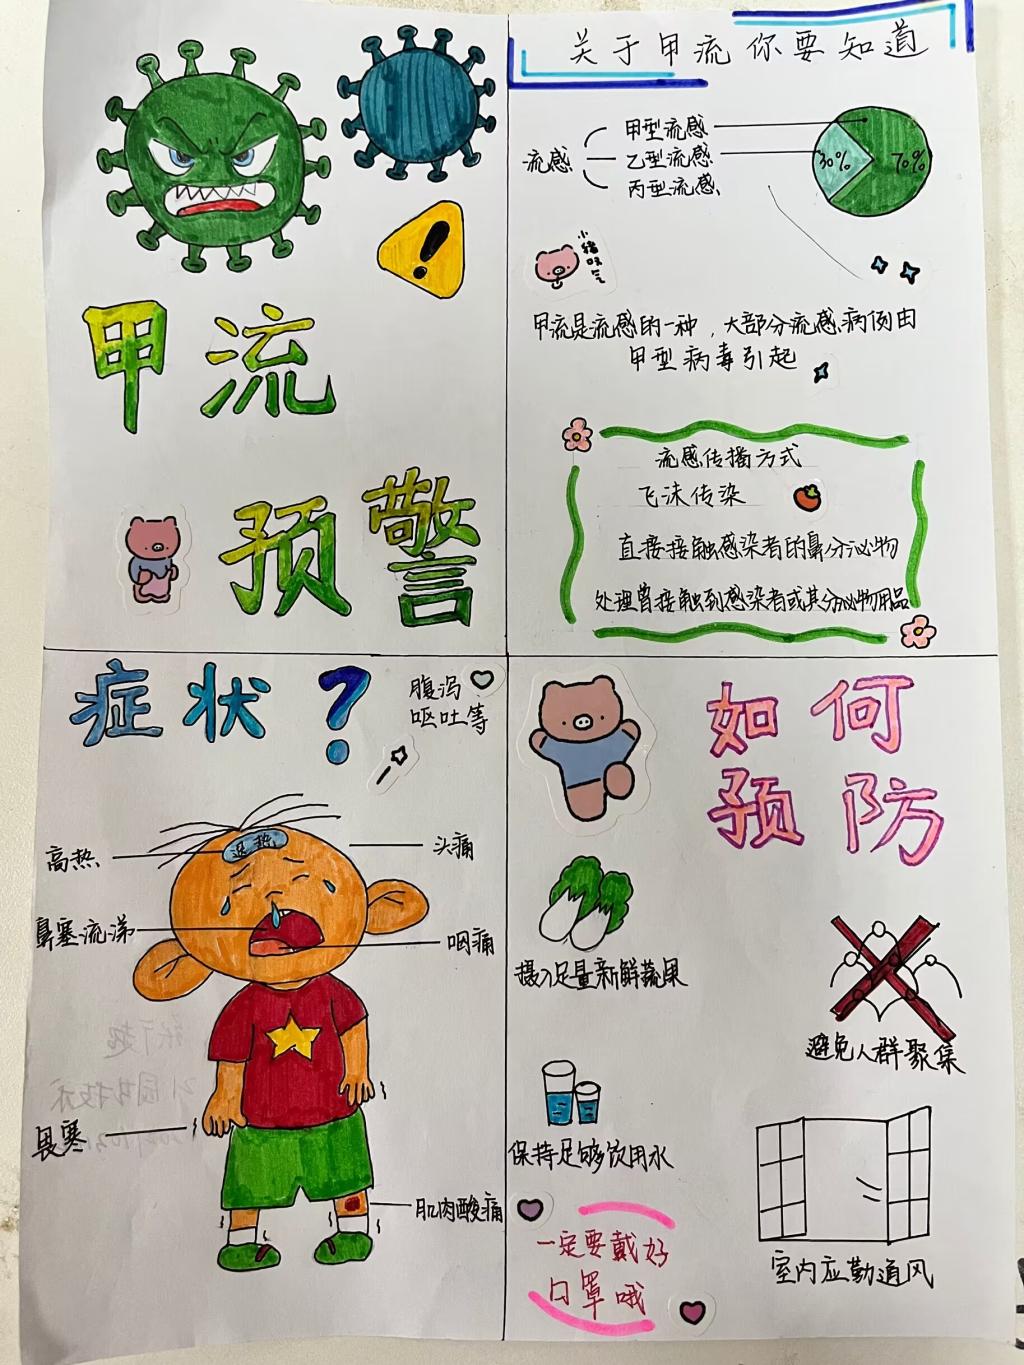 甲流
预警
关于甲流你要知道
流感
甲型流感
乙型流感
丙型流感
30%
70%
小猪
甲流是流感的一种，大部分流感病例由
甲型病毒引起
流感传播方式
飞沫传染
直接接触感染者的鼻分泌物
处理曾接触到感染者或其分泌物用品
症状？
腹泻
呕吐等
退热
高热
头痛
鼻塞流涕
咽痛
畏寒
肌肉酸痛
如何
预防
摄入足量新鲜蔬果
避免人群聚集
保持足够饮用水
室内应勤通风
一定要戴好
口罩哦